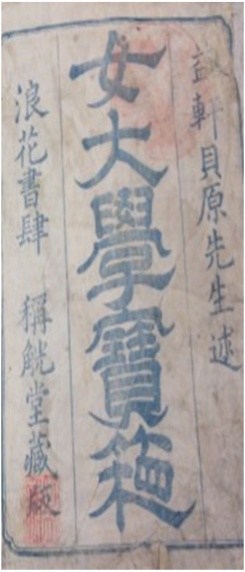 益軒貝原先生述
女大學寶箱
浪花書肆 稱觥堂藏版